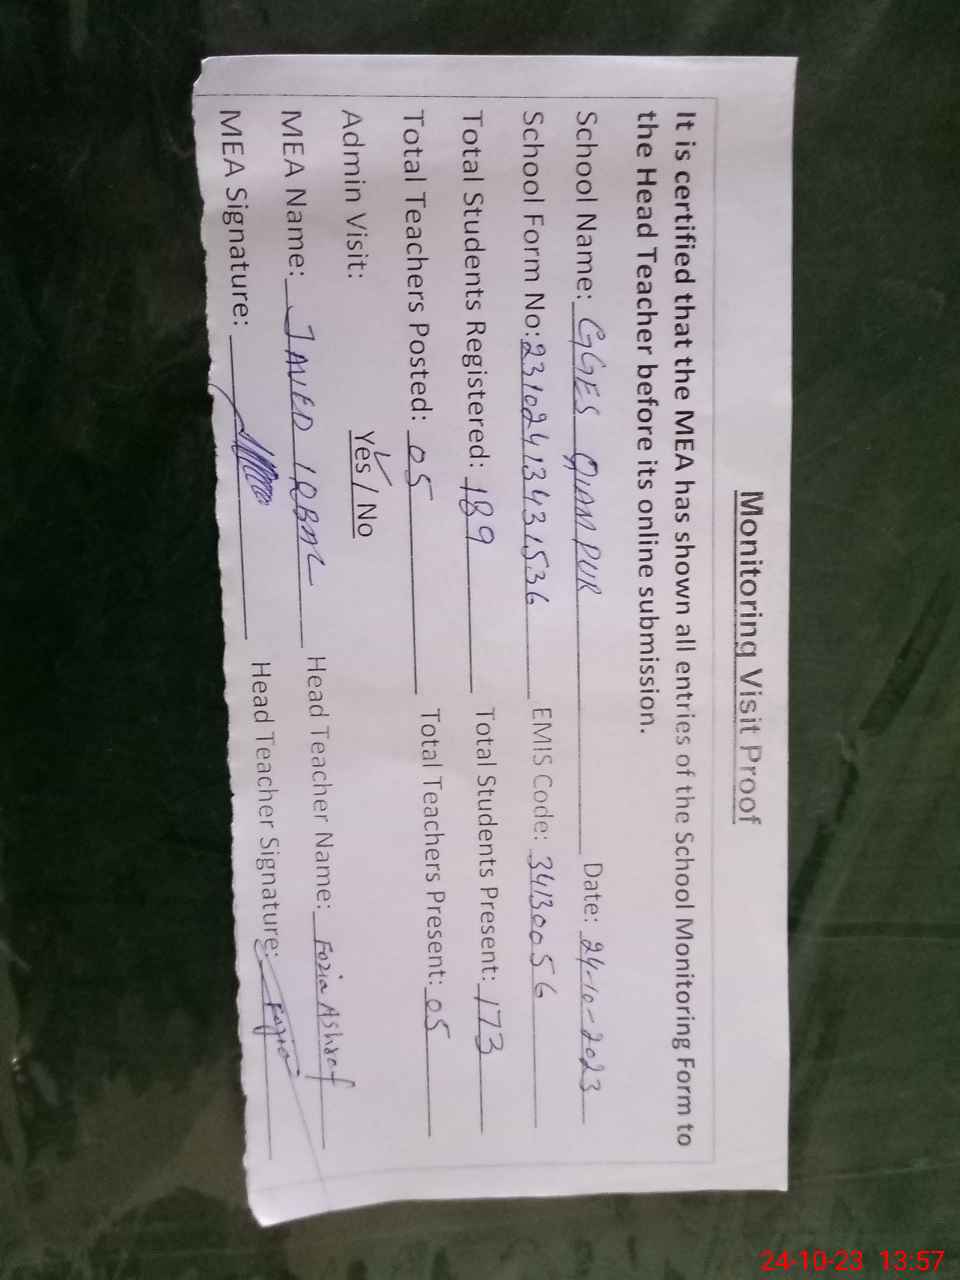 Monitoring Visit Proof
It is certified that the MEA has shown all entries of the School Monitoring Form to
the Head Teacher before its online submission.
School Name: GGES QIAMPUR Date: 24-10-2023
School Form No: 23102413431536 EMIS Code: 34130056
Total Students Registered: 189 Total Students Present: 173
Total Teachers Posted: 05 Total Teachers Present: 05
Admin Visit: Yes / No
MEA Name: JAVED IQBAL Head Teacher Name: Fozia Ashraf
MEA Signature: Head Teacher Signature: Fozia
24-10-23 13:57